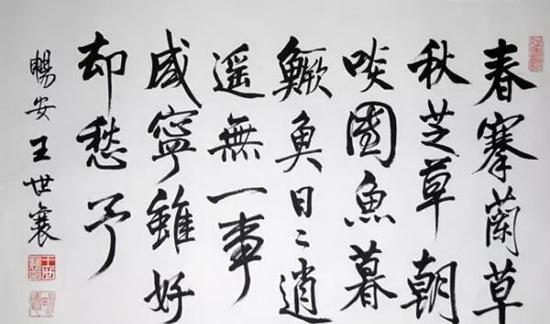 春搴蘭草
秋芝草朝
啖國魚暮
鱖魚日々逍
遥無一事
咸寧雖好
却愁予
暢安王世襄